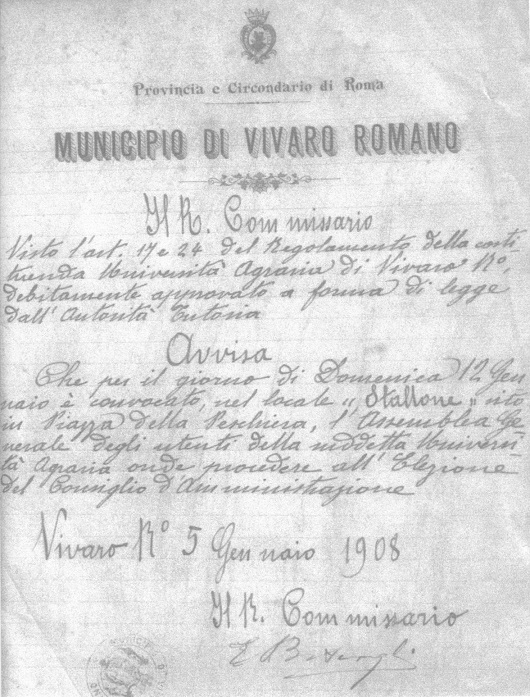 Provincia e Circondario di Roma
MUNICIPIO DI VIVARO ROMANO
Il R. Commissario
Visto l'art. 17 e 24 del Regolamento della costi
tuenda Università Agraria di Vivaro R°,
debitamente approvato a forma di legge
dall'Autorità Tutoria
Avvisa
Che per il giorno di Domenica 12 Gen
naio è convocato, nel locale „Stallone" sito
in Piazza della Peschiera, l'Assemblea Ge
nerale degli utenti della suddetta Universi
tà Agraria onde procedere all'Elezione
del Consiglio d'Amministrazione
Vivaro R° 5 Gennaio 1908
Il R. Commissario
E